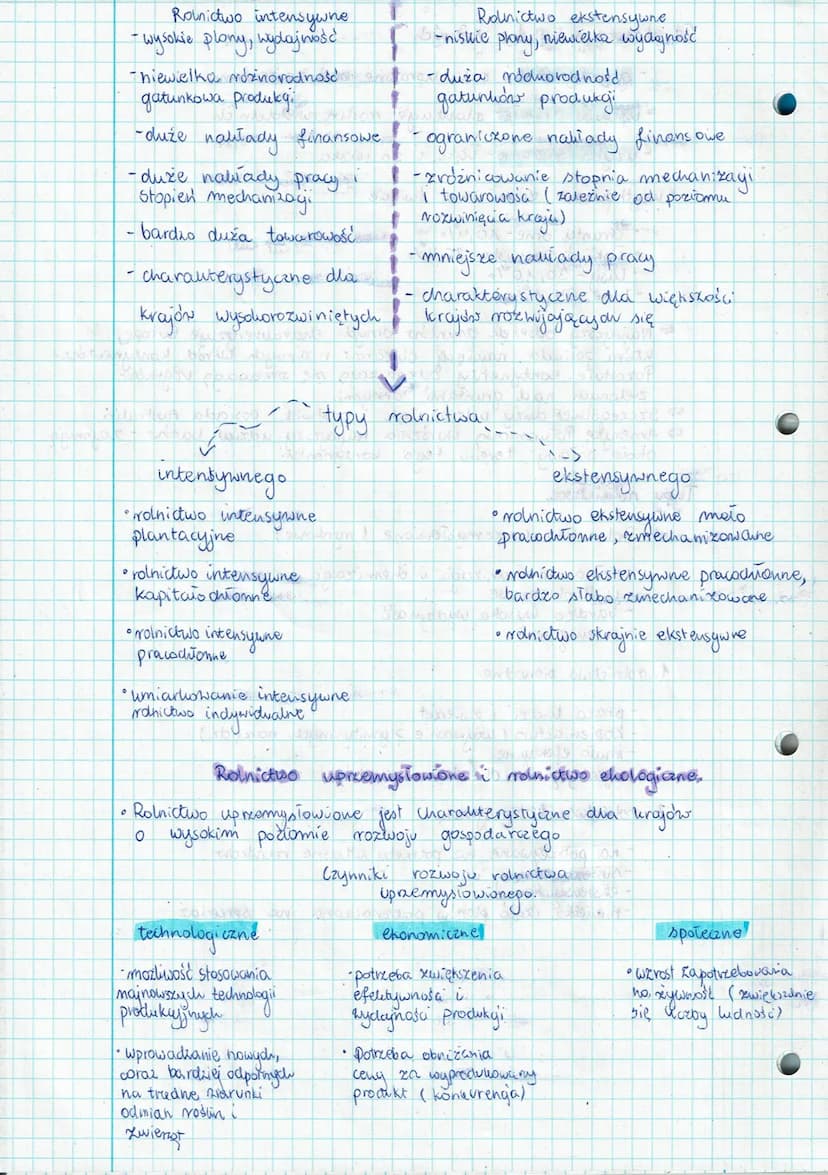 Rolnictwo intensywne
- wysokie plony, wydajność
- niewielka różnorodność
gatunkowa produkcji
- duże nakłady finansowe
- duże nakłady pracy i
stopień mechanizacji
- bardzo duża towarowość
- charakterystyczne dla
krajów wysokorozwiniętych
Rolnictwo ekstensywne
- niskie plony, niewielka wydajność
- duża różnorodność
gatunków produkcji
- ograniczone nakłady finansowe
- zróżnicowanie stopnia mechanizacji
i towarowość (zależnie od poziomu
rozwinięcia kraju)
- mniejsze nakłady pracy
- charakterystyczne dla większości
krajów rozwijających się
typy rolnictwa
intensywnego
• rolnictwo intensywne
plantacyjne
• rolnictwo intensywne
kapitałochłonne
• rolnictwo intensywne
pracochłonne
• umiarkowanie intensywne
rolnictwo indywidualne
ekstensywnego
• rolnictwo ekstensywne mało
pracochłonne, zmechanizowane
• rolnictwo ekstensywne pracochłonne,
bardzo słabo zmechanizowane
• rolnictwo skrajnie ekstensywne
Rolnictwo uprzemysłowione i rolnictwo ekologiczne.
• Rolnictwo uprzemysłowione jest charakterystyczne dla krajów
o wysokim poziomie rozwoju gospodarczego
Czynniki rozwoju rolnictwa
uprzemysłowionego.
technologiczne
· możliwość stosowania
najnowszych technologii
produkcyjnych
· wprowadzanie nowych,
coraz bardziej odpornych
na trudne warunki
odmian roślin i
zwierząt
ekonomiczne
· potrzeba zwiększenia
efektywności i
wydajności produkcji
· Potrzeba obniżania
ceny za wyprodukowany
produkt (konkurencja)
społeczne
• wzrost zapotrzebowania
na żywność (zwiększenie
się liczby ludności)